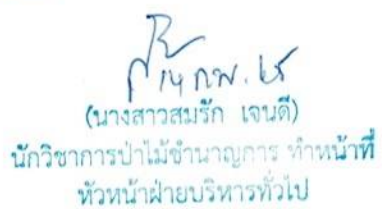 14 กพ. 65
(นางสาวสมรัก เจนดี)
นักวิชาการป่าไม้ชำนาญการ ทำหน้าที่
หัวหน้าฝ่ายบริหารทั่วไป